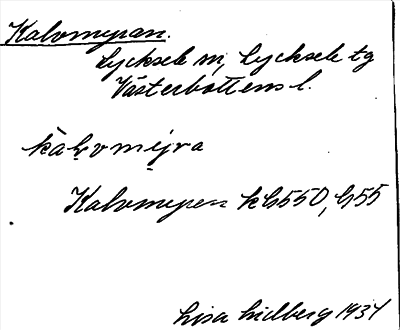 Kalvmyran.
Lycksele sn, Lycksele tg
Västerbottens l.
kàḷvmỵra
Kalvmyren kh550, h55
Lisa Lidberg 1934